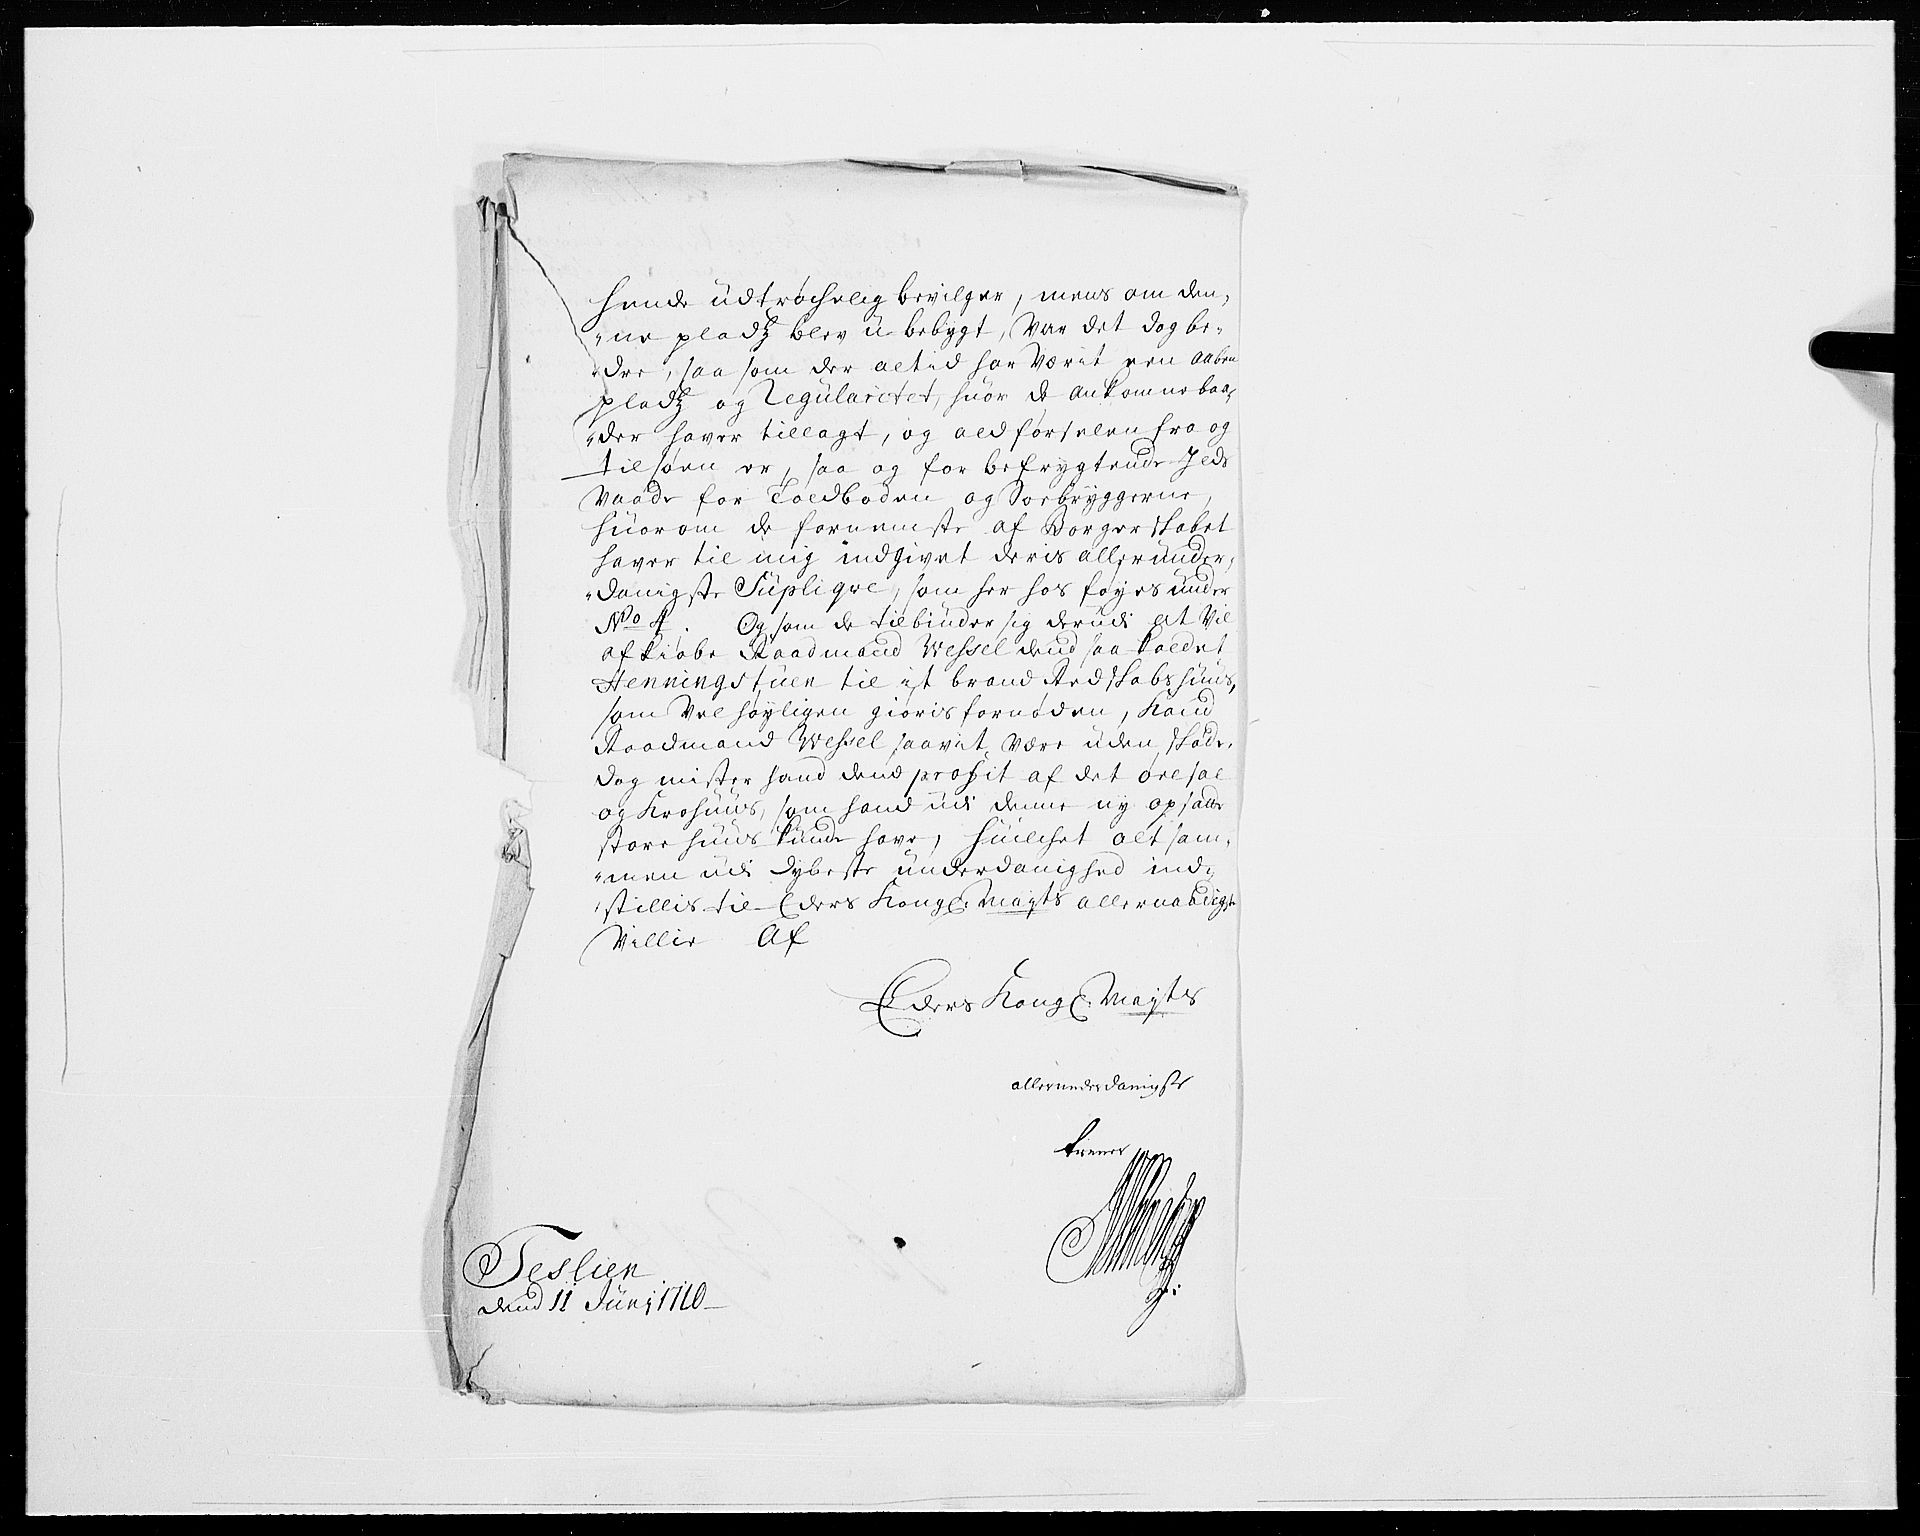 hende üdtröchelig bevilger, mens om den,
„ne pladtz blev ü-bebygt, Var det dog be-
„dre, saa som der altid har Værit een aaben
pladtz og Regülaritet, hüor de ankomne baa,
„der haver tillagt, og ald förselen fra og
til söen er, saa og for befrygtende Ilds
Vaade for Toldboden og Söebryggerne,
hüorom de fornemste af Borgerskabet
haver til mig indgivet deris alleründer,
„danigste Süpliqve, som her hos föyes ünder
No 4. Og som de tilbinder sig derüdi at Vil
afkiöbe Raadmand Wessel dend saa kaldet
Henningstüen til et brand Redskabs hüüs,
som Vel höyligen giöris fornöden, Kand
Raadmand Wessel saavit være üden skade,
dog mister hand dend profit af det ölesal
og Krohüüs, som hand üdi denne ny opsatte
store hüüs künde have, hüilchet alt sam,
„men üdi dybeste ünderdanighed ind,
stillis til Eders Kongl. Mayts allernaadigste
Villie Af
Eders Kongl. Mayts
allerunderdanigste
tienner
Teslien
dend 11 Jüni 1710